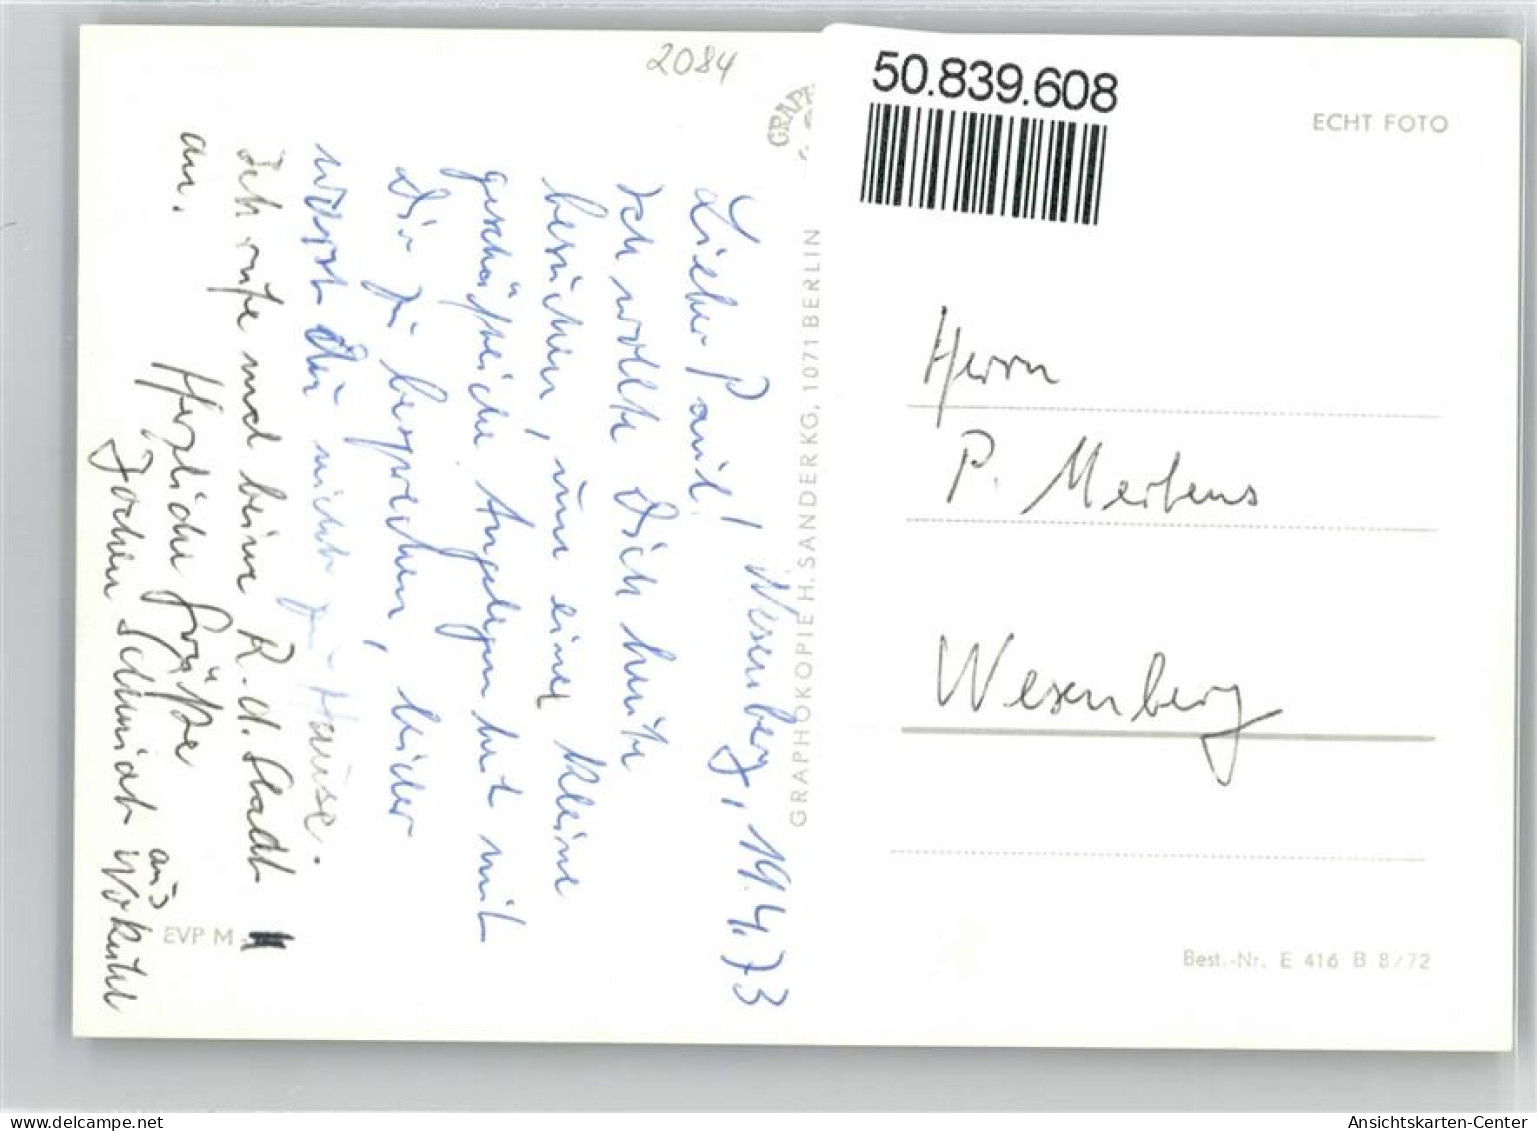 2084
50.839.608
ECHT FOTO
Wesenberg, 19.4.73
Lieber Paul!
Ich wollte Dich heute
besuchen, um einer kleine
geschäftliche Angelegenheit mit
Dir zu besprechen, leider
warst Du nicht zu Hause.
Ich rufe mal beim R. d. Stadt
an.
Herzliche Grüße
Jochen Schmidt aus
Wokuhl
EVP M
GRAPHOKOPIE H. SANDER KG, 1071 BERLIN
Herrn
P. Mertens
Wesenberg
Best.-Nr. E 416 B 8/72
delcampe.net
Ansichtskarten-Center